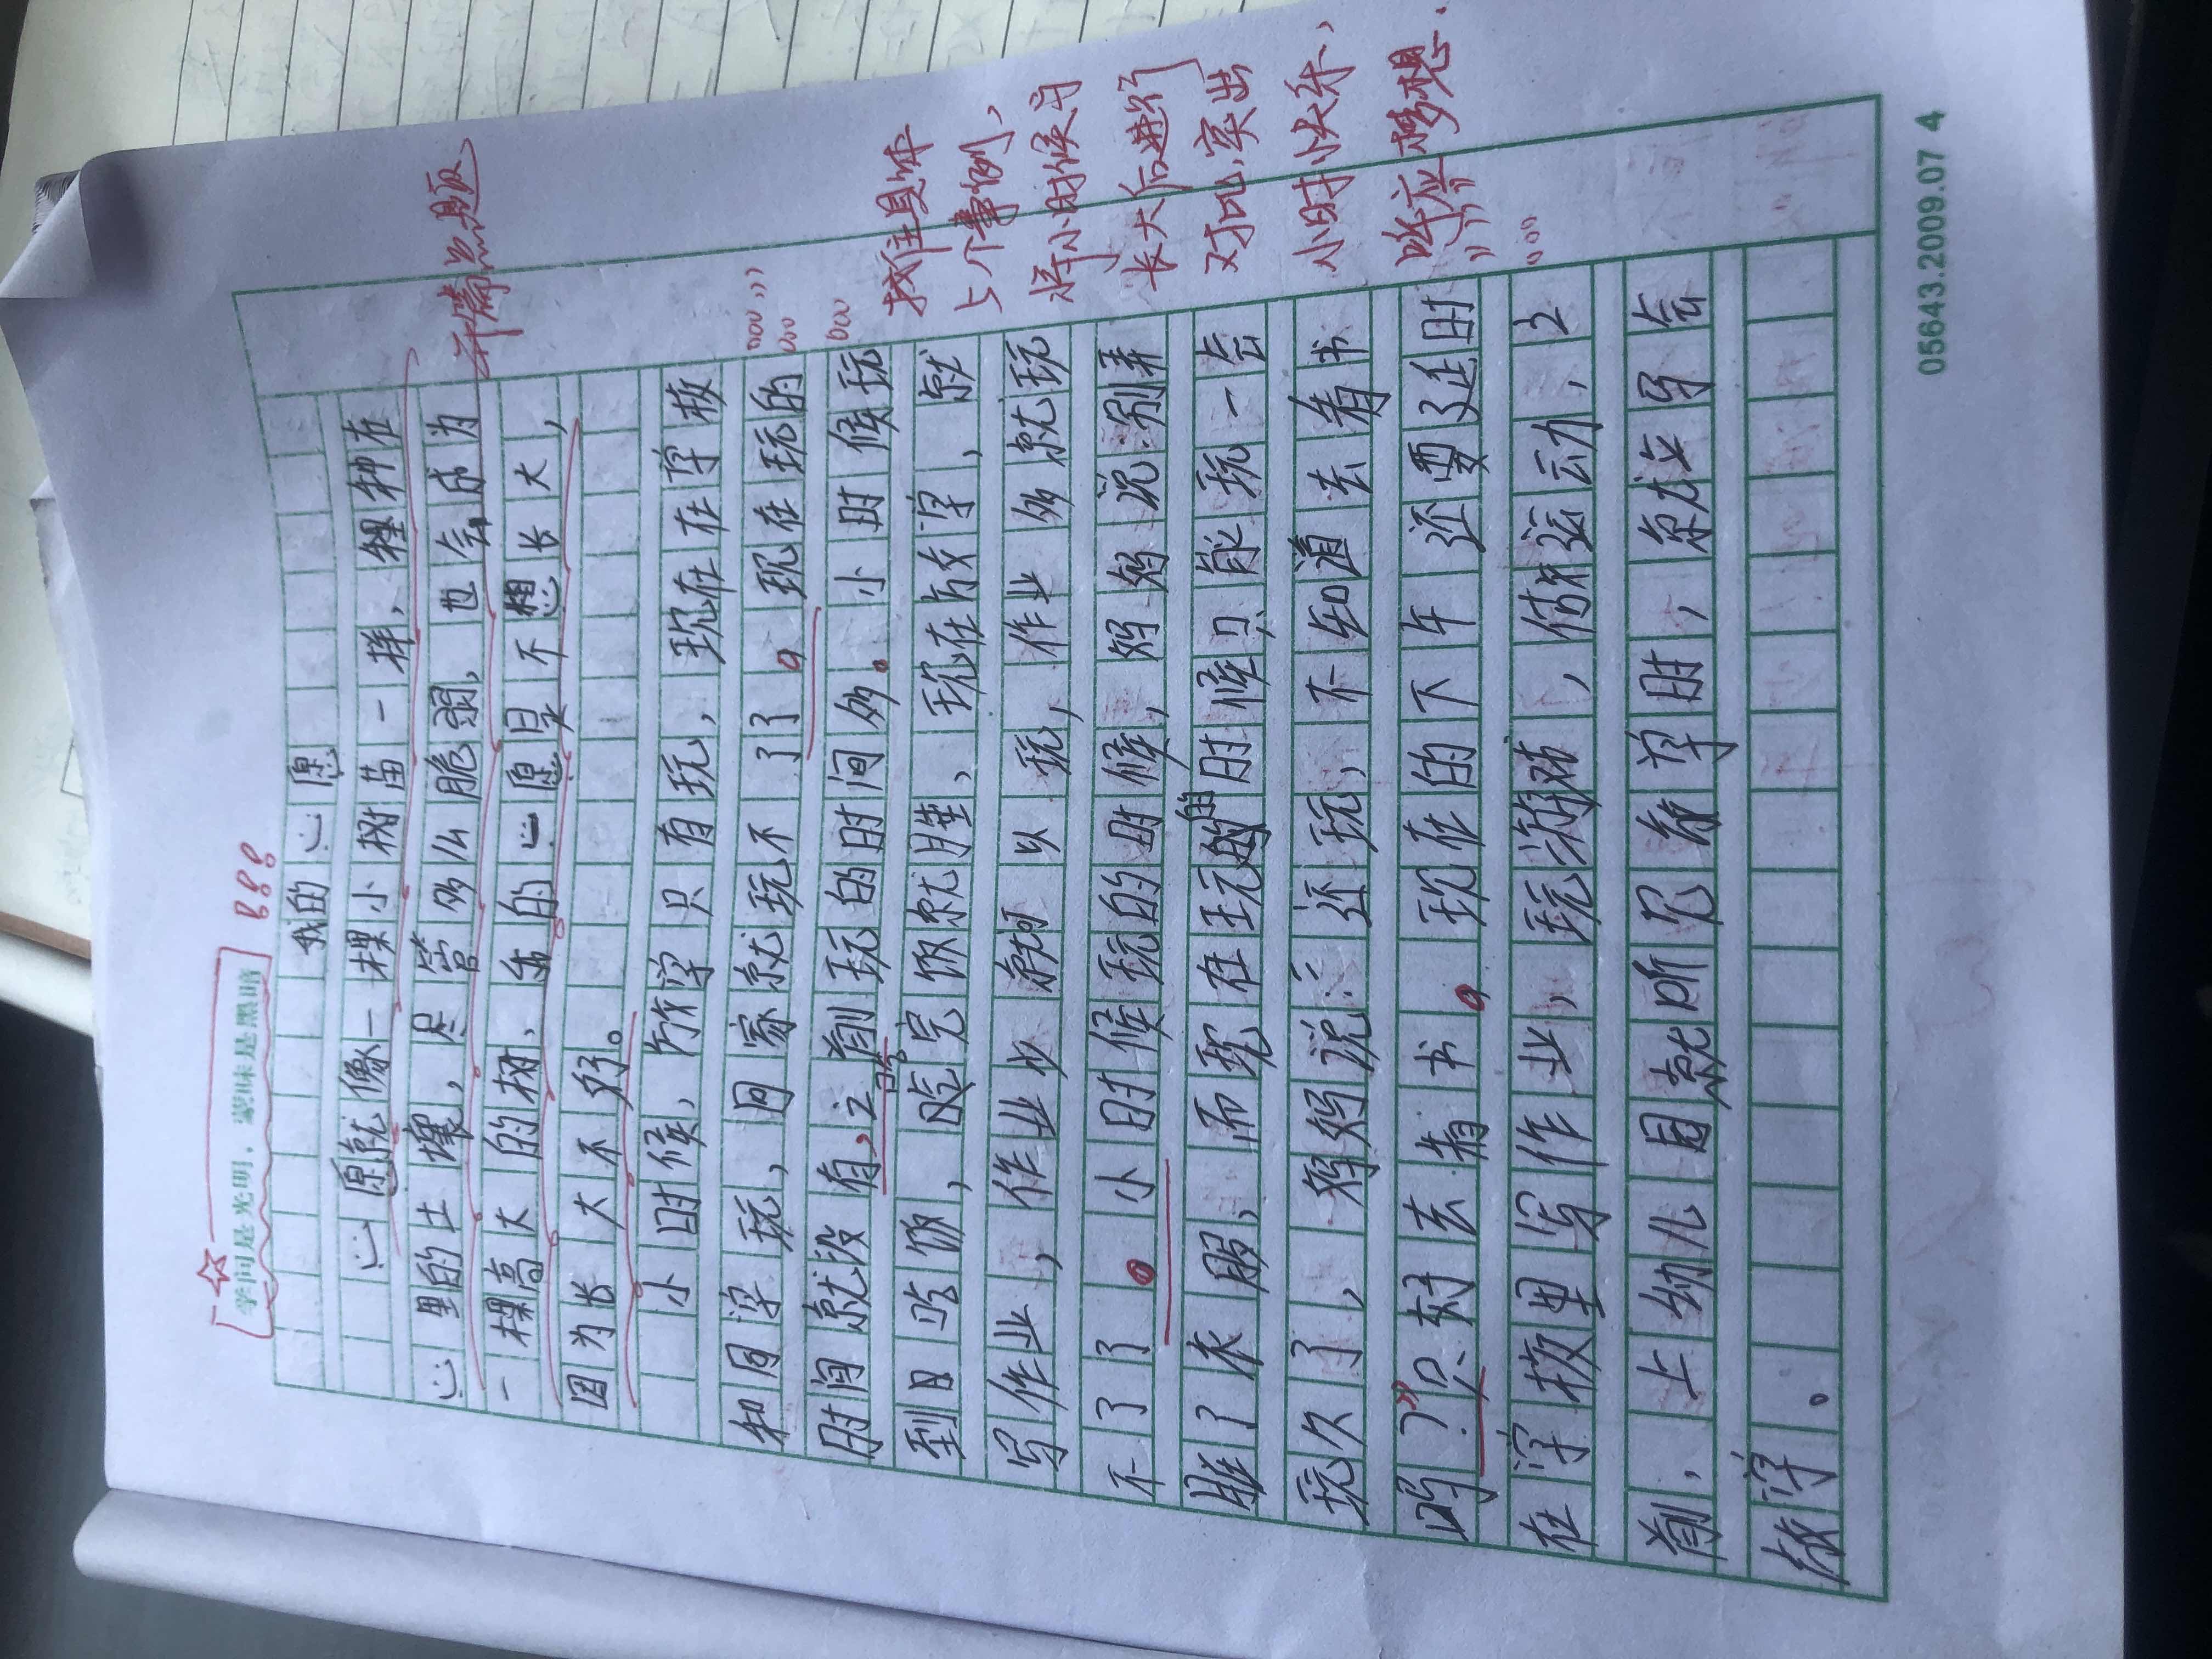 学问是光明，蒙昧是黑暗
我的心愿
心愿就像一棵小树苗一样，种在
心里的土壤，尽管多么脆弱，也会成为
一棵高大的树，我的心愿是不想长大，
因为长大不好。
开篇点题
小时候，放学只有玩，现在在学校
和同学玩，回家就玩不了了。现在玩的
时间就没有，之前玩的时间多。小时候玩
到日吃饭，吃完饭就睡，现在放学，就
写作业，作业少就可以玩，作业多就玩
不了了。小时候玩的时候，妈妈说别弄
脏了衣服，而现在玩的时候只能玩一会
玩久了，妈妈说：还玩，不知道去看书
吗？”只好去看书。现在的下午还要延时
在学校里写作业，玩游戏，体育运动，2
前，上幼儿园就听见放学时，就立马会
放学。
抓住具体
个事例，
将小时候与
长大后进行
对比，突出
小时小快乐，
呼应梦想．
05643.2009.07 4